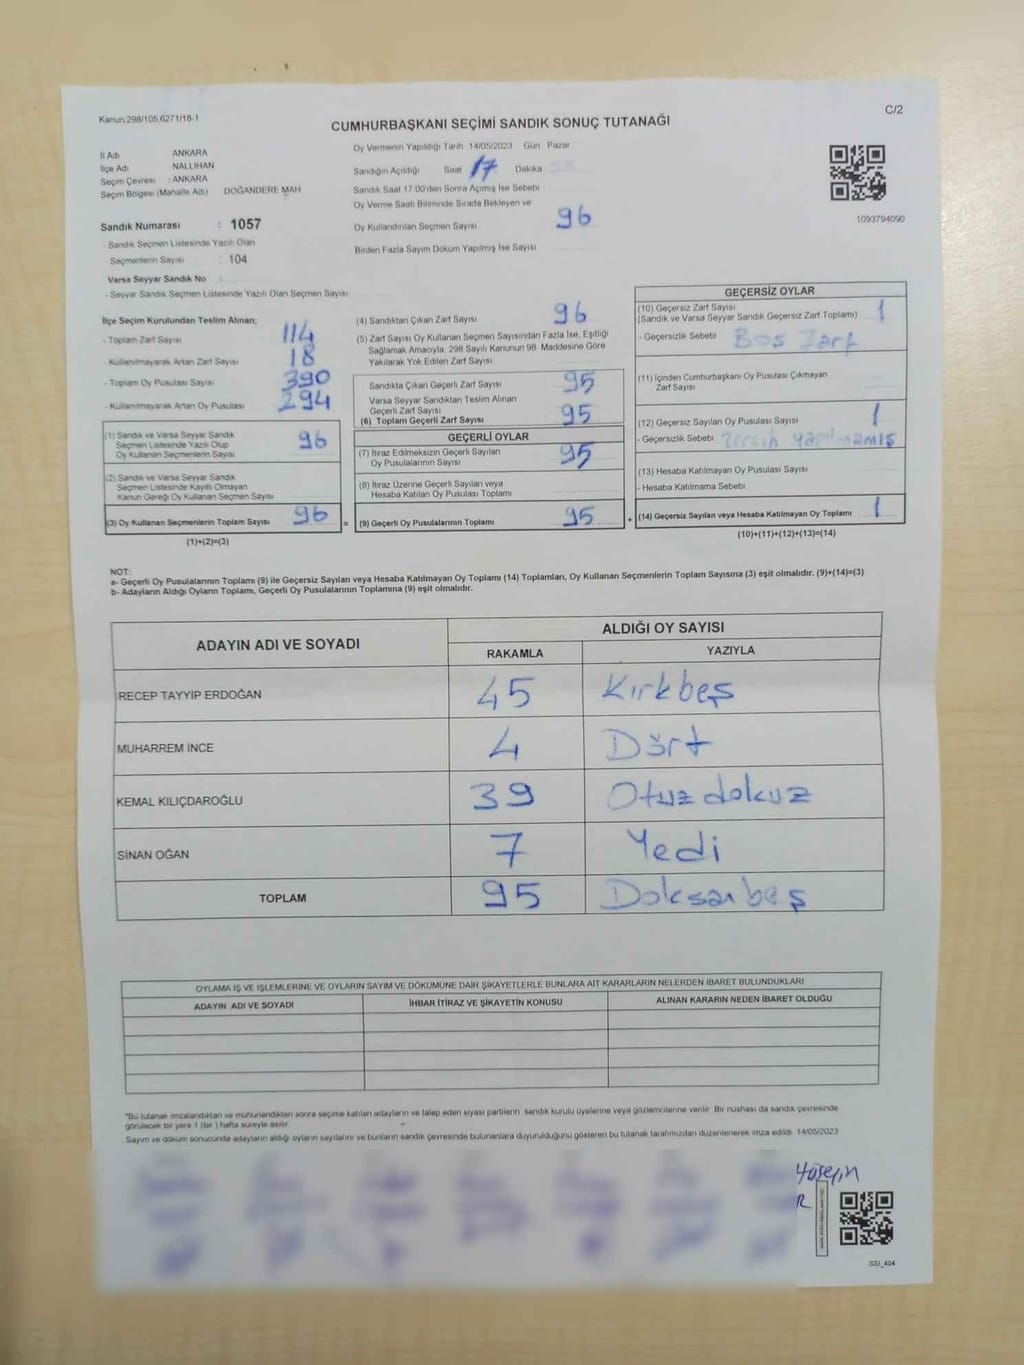 Kanun 298/105.6271/18-1
C/2
CUMHURBAŞKANI SEÇİMİ SANDIK SONUÇ TUTANAĞI
İl Adı ANKARA
İlçe Adı NALLIHAN
Seçim Çevresi : ANKARA
Seçim Bölgesi (Mahalle Adı) DOĞANDERE MAH
Sandık Numarası : 1057
- Sandık Seçmen Listesinde Yazılı Olan
Seçmenlerin Sayısı 104
Varsa Seyyar Sandık No
- Seyyar Sandık Seçmen Listesinde Yazılı Olan Seçmen Sayısı
Oy Vermenin Yapıldığı Tarih 14/05/2023 Gün Pazar
Sandığın Açıldığı Saat 17 Dakika
Sandık Saat 17:00'den Sonra Açımış İse Sebebi
Oy Verme Saati Bitiminde Sırada Bekleyen ve
Oy Kullandırılan Seçmen Sayısı 96
Birden Fazla Sayım Döküm Yapılmış İse Sayısı
1093794090
İlçe Seçim Kurulundan Teslim Alınan;
- Toplam Zarf Sayısı 114
- Kullanılmayarak Artan Zarf Sayısı 18
- Toplam Oy Pusulası Sayısı 390
- Kullanılmayarak Artan Oy Pusulası 294
(1) Sandık ve Varsa Seyyar Sandık
Seçmen Listesinde Yazılı Olup
Oy Kullanan Seçmenlerin Sayısı 96
(2) Sandık ve Varsa Seyyar Sandık
Seçmen Listesinde Kayıtlı Olmayan
Kanun Gereği Oy Kullanan Seçmen Sayısı
(3) Oy Kullanan Seçmenlerin Toplam Sayısı 96 =
(1)+(2)=(3)
(4) Sandıktan Çıkan Zarf Sayısı 96
(5) Zarf Sayısı Oy Kullanan Seçmen Sayısından Fazla İse, Eşitliği
Sağlamak Amacıyla, 298 Sayılı Kanunun 98. Maddesine Göre
Yakılarak Yok Edilen Zarf Sayısı
Sandıkta Çıkan Geçerli Zarf Sayısı 95
Varsa Seyyar Sandıktan Teslim Alınan
Geçerli Zarf Sayısı
(6) Toplam Geçerli Zarf Sayısı 95
GEÇERLİ OYLAR
(7) İtiraz Edilmeksizin Geçerli Sayılan
Oy Pusulalarının Sayısı 95
(8) İtiraz Üzerine Geçerli Sayılan veya
Hesaba Katılan Oy Pusulası Toplamı
(9) Geçerli Oy Pusulalarının Toplamı 95 +
GEÇERSİZ OYLAR
(10) Geçersiz Zarf Sayısı 1
(Sandık ve Varsa Seyyar Sandık Geçersiz Zarf Toplamı)
- Geçersizlik Sebebi Boş Zarf
(11) İçinden Cumhurbaşkanı Oy Pusulası Çıkmayan
Zarf Sayısı
(12) Geçersiz Sayılan Oy Pusulası Sayısı 1
- Geçersizlik Sebebi Tercih yapılmamış
(13) Hesaba Katılmayan Oy Pusulası Sayısı
- Hesaba Katılmama Sebebi
(14) Geçersiz Sayılan veya Hesaba Katılmayan Oy Toplamı 1
(10)+(11)+(12)+(13)=(14)
NOT:
a- Geçerli Oy Pusulalarının Toplamı (9) ile Geçersiz Sayılan veya Hesaba Katılmayan Oy Toplamı (14) Toplamları, Oy Kullanan Seçmenlerin Toplam Sayısına (3) eşit olmalıdır. (9)+(14)=(3)
b- Adayların Aldığı Oyların Toplamı, Geçerli Oy Pusulalarının Toplamına (9) eşit olmalıdır.
ADAYIN ADI VE SOYADI
ALDIĞI OY SAYISI
RAKAMLA YAZIYLA
RECEP TAYYİP ERDOĞAN 45 Kırkbeş
MUHARREM İNCE 4 Dört
KEMAL KILIÇDAROĞLU 39 Otuzdokuz
SİNAN OĞAN 7 Yedi
TOPLAM 95 Doksanbeş
OYLAMA İŞ VE İŞLEMLERİNE VE OYLARIN SAYIM VE DÖKÜMÜNE DAİR ŞİKAYETLERLE BUNLARA AİT KARARLARIN NELERDEN İBARET BULUNDUKLARI
ADAYIN ADI VE SOYADI İHBAR İTİRAZ VE ŞİKAYETİN KONUSU ALINAN KARARIN NEDEN İBARET OLDUĞU
"Bu tutanak imzalandıktan ve mühürlendikten sonra seçime katılan adayların ve talep eden siyasi partilerin sandık kurulu üyelerine veya gözlemcilerine verilir. Bir nüshası da sandık çevresinde
görülecek bir yere 1 (bir ) hafta süreyle asılır.
Sayım ve döküm sonucunda adayların aldığı oyların sayılarını ve bunların sandık çevresinde bulunanlara duyurulduğunu gösteren bu tutanak tarafımızdan düzenlenerek imza edildi. 14/05/2023
Hüseyin
SSI_404